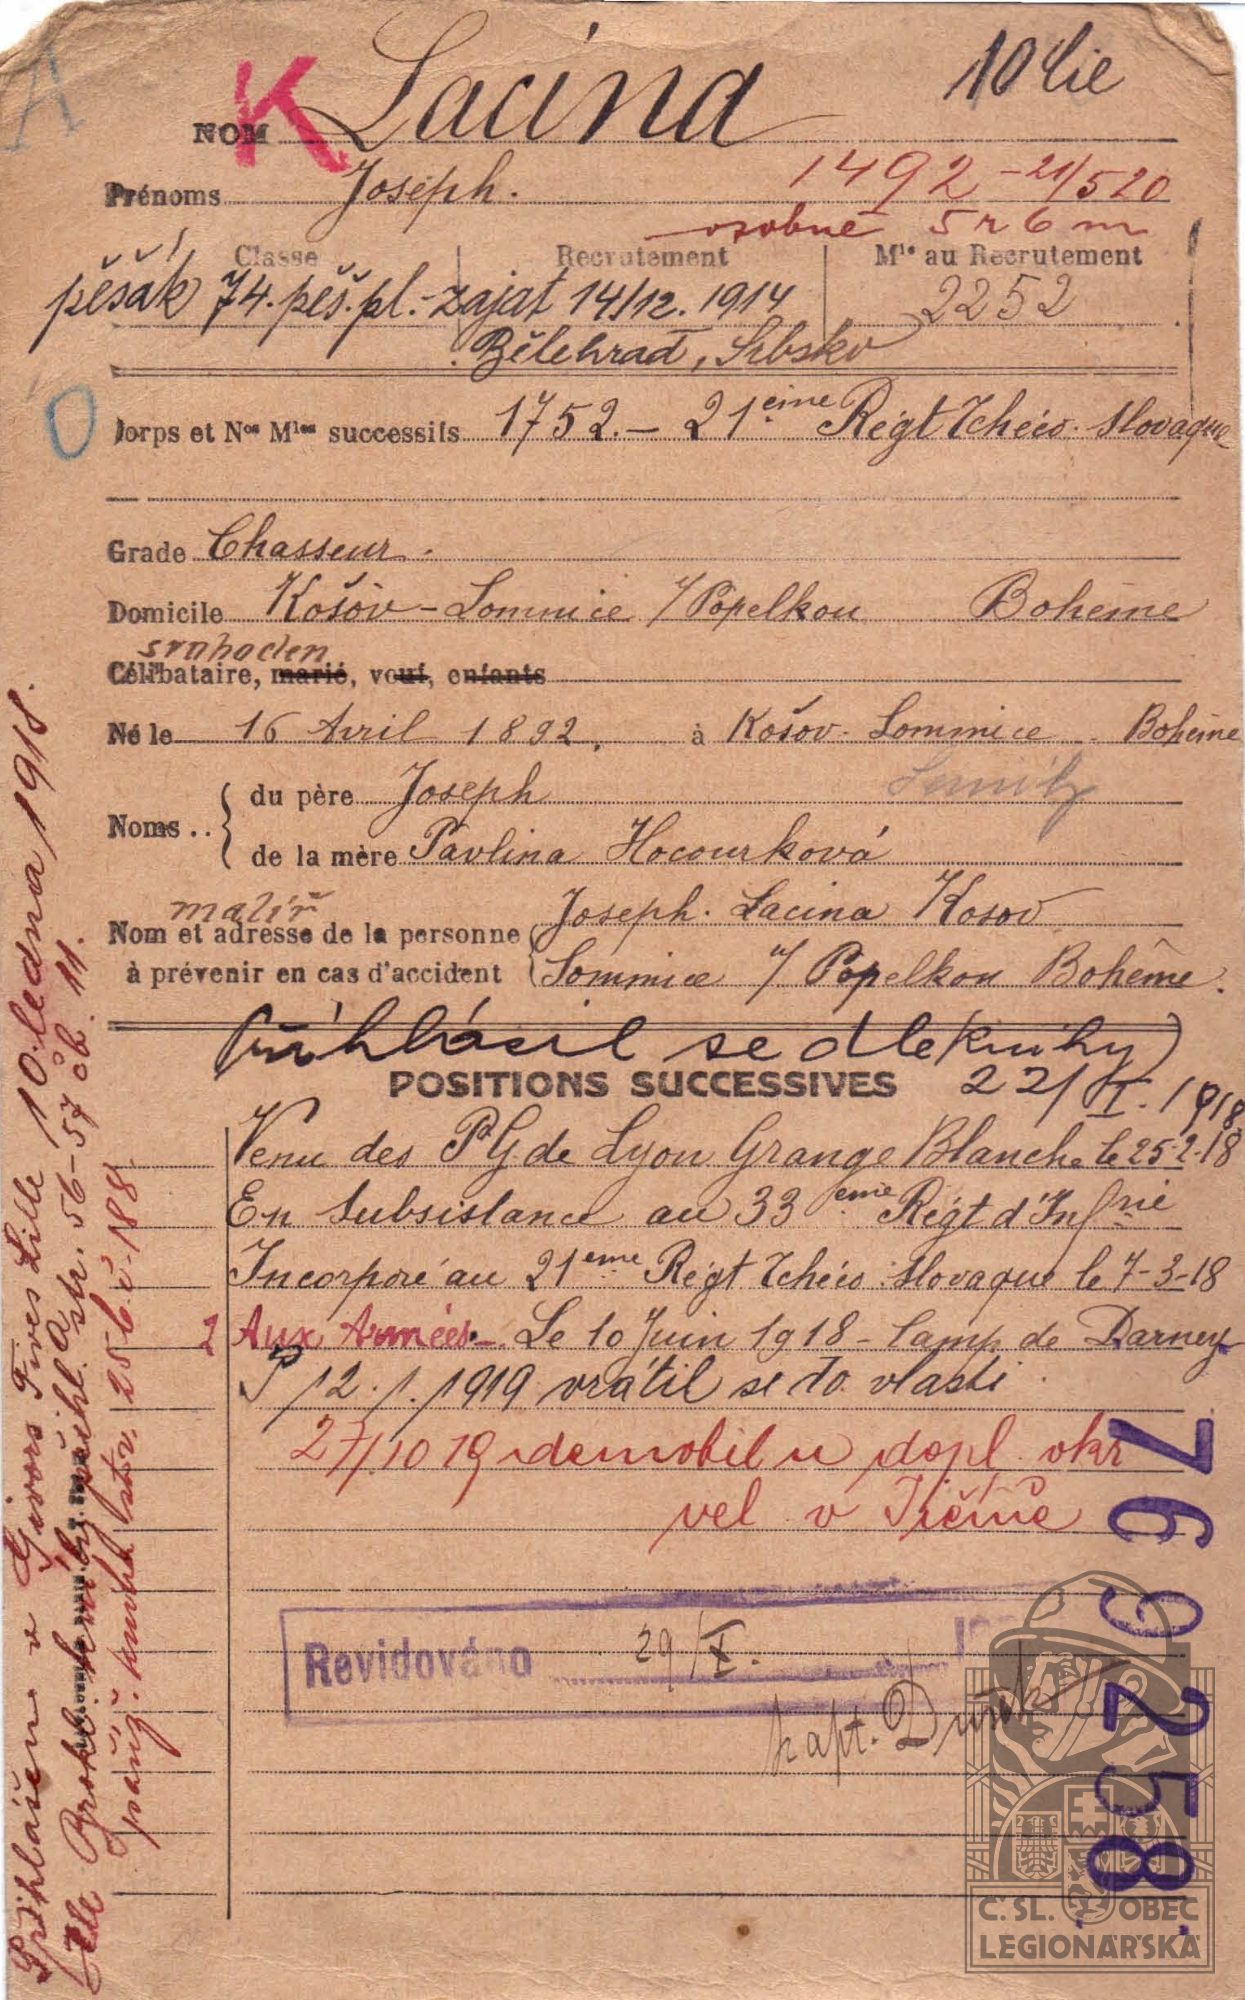 A
K
10 Cie
NOM Lacina
Prénoms Joseph.
1492 - 21/520
osobne 5 r 6 m
Classe Recrutement Mle au Recrutement
pěšák 74. pěš. pl. - zajat 14/12. 1914 2252
Bělehrad, Srbsko
Corps et Nos Mles successifs 1752. - 21ème Régt Tchéco-Slovaque
Grade Chasseur.
Domicile Košov - Lomnice 7/Popelkou Bohême
svoboden
Célibataire, marié, veuf, enfants
Né le 16 Avril 1892. à Košov - Lomnice Bohême
Semily
Noms .. du père Joseph
de la mère Pavlina Kocourková
malíř
Nom et adresse de la personne Joseph. Lacina Kosov
à prévenir en cas d'accident Lomnice 7/ Popelkou Bohême.
Přihlásil se dle knihy
POSITIONS SUCCESSIVES 22/I. 1918
Venu des P.G de Lyon Grange Blanche le 25-2-18
En Subsistance au 33eme Régt d'Infrie
Incorporé au 21eme Régt Tchéco-Slovaque le 7-3-18
Aux Armées. - Le 10 Juin 1918 - Camp de Darney
12. 1. 1919 vrátil se do vlasti
27/10 19 demobil u dopl. okr
vel v Jičíně
Revidováno 29/X.
kapt.
769258
Přihlášen v Givors Fives Lille 10. ledna 1918.
dle přihl. str. 56-57 čb. 11.
Č. SL. OBEC
LEGIONÁŘSKÁ